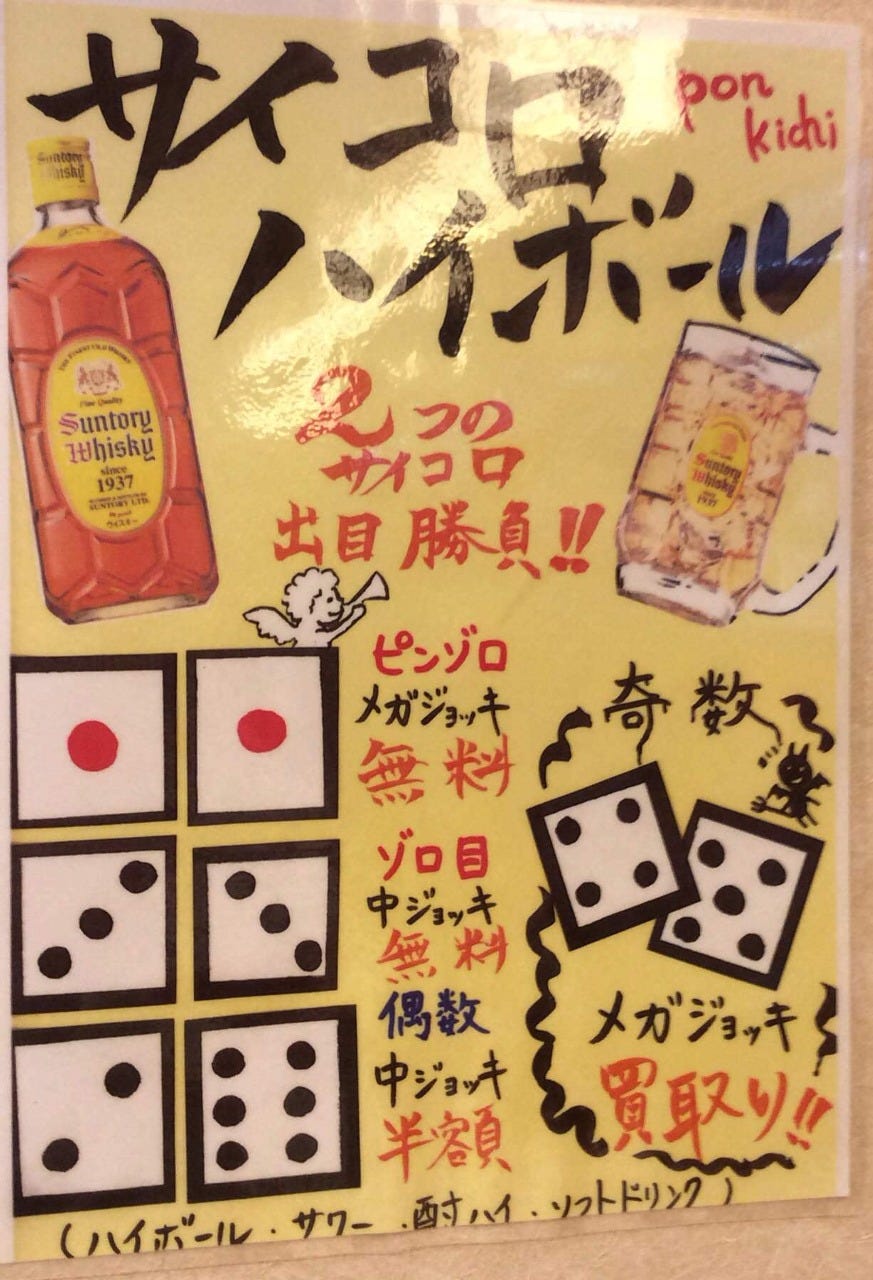 サイコロ
pon
kichi
ハイボール
Suntory
Whisky
THE FINEST OLD WHISKY
Fine Quality
Suntory
Whisky
since
1937
SUNTORY LTD.
ウイスキー
2つの
サイコロ
出目 勝負!!
Suntory
Whisky
ピンゾロ
メガジョッキ
無料
ゾロ目
中ジョッキ
無料
偶数
中ジョッキ
半額
奇数
メガジョッキ
買取り!!
(ハイボール・サワー・酎ハイ・ソフトドリンク)